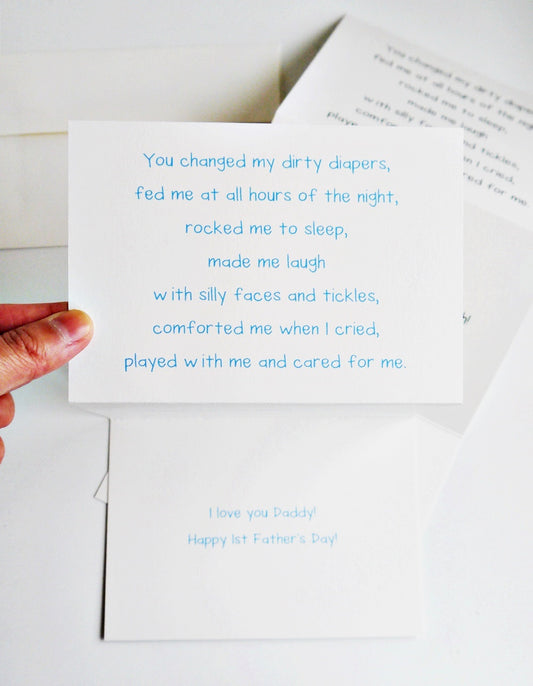 You changed my dirty diapers,
fed me at all hours of the night,
rocked me to sleep,
made me laugh
with silly faces and tickles,
comforted me when I cried,
played with me and cared for me.
I love you Daddy!
Happy 1st Father's Day!
You changed my dirty diapers
fed me at all hours of the
rocked me to sleep,
made me laugh
with silly and tickles,
when I cried,
cared for me